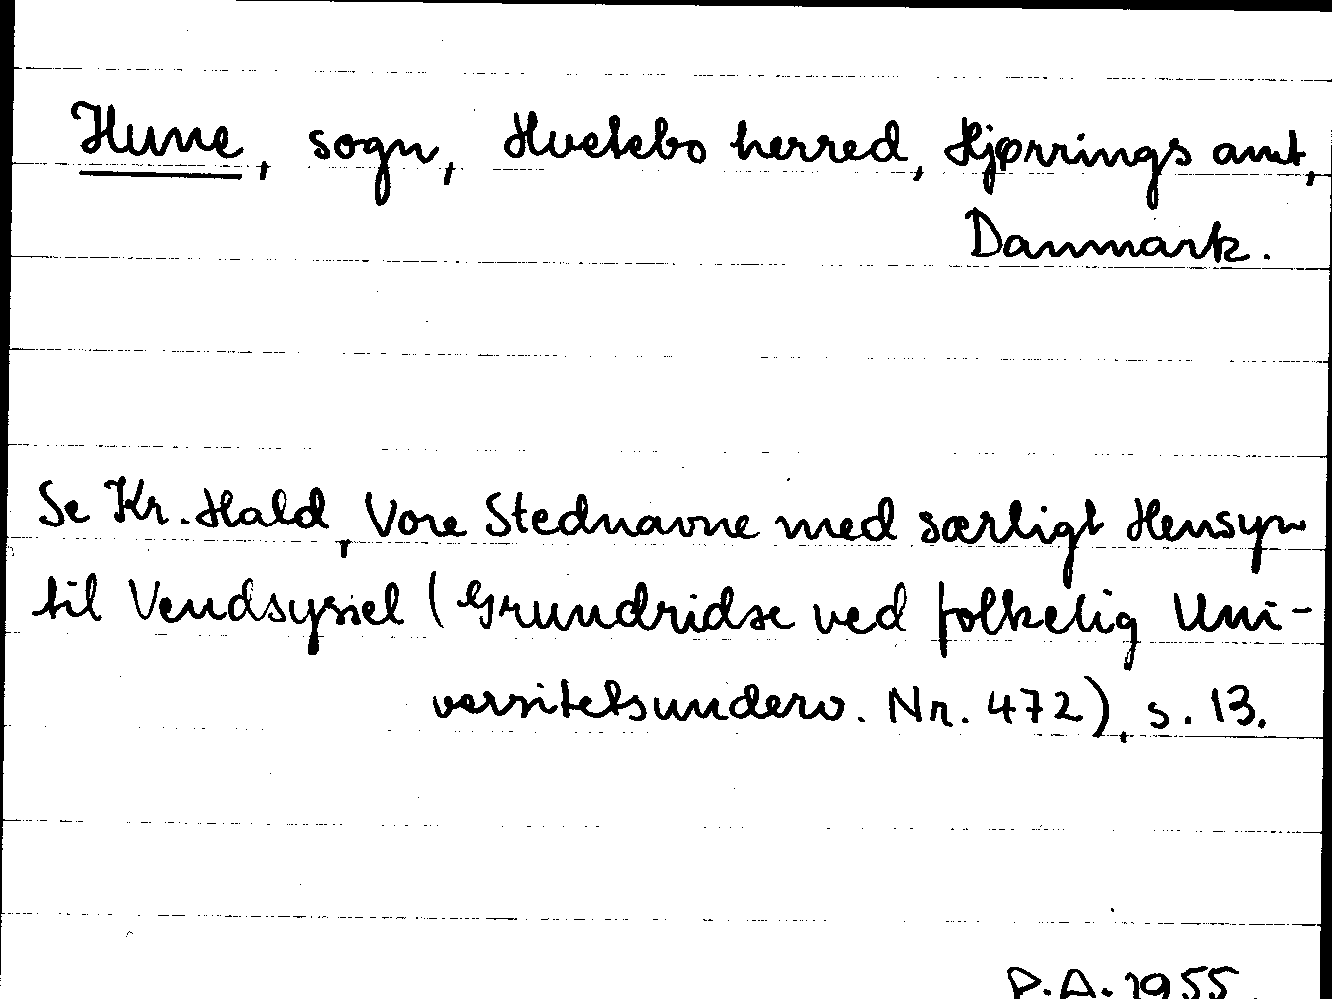 Hune, sogn, Hvetebo herred, Hjørrings amt,
Danmark.
Se Kr. Hald, Vore Stednavne med særligt Hensyn
til Vendsyssel (Grundridse ved folkelig Uni-
versitetsunderv. Nr. 472), s. 13.
P.A. 1955